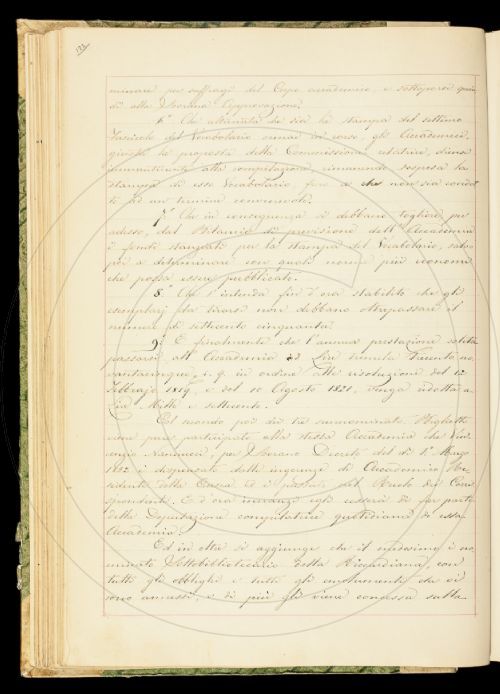 minare pei suffragi del Corpo accademico, e sottoporsi quin
di alla Sovrana Approvazione.
6.° Che ultimata che sia la stampa del settimo
Fascicolo del Vocabolario ormai in corso, gli Accademici,
giusta la proposta della Commissione, 
unicamente alla compilazione rimanendo sospesa la
stampa di esso Vocabolario, fino a che non sia condot
to ad un termine conveniente.
7.° Che in conseguenza si debbano togliere per
adesso, dal Bilancio di previsione dell'Accademia
i fondi stanziati per la stampa del Vocabolario, salvo
poi a determinare con quali norme più economi
che possa essere pubblicato.
8.° Che s'intenda fin d'ora stabilito che gli
esemplari da tirarsi non debbano oltrepassare il
numero di settecento cinquanta.
9.° E finalmente che l'annua prestazione solita
passarsi all'Accademia di Lire tremila trecento no
vantacinque, in ordine alle risoluzioni del 12
Febbrajo 1819, e del 10 Agosto 1821, venga ridotta a
Lire Mille e settecento.
Col secondo poi dei tre summentovati Biglietti
viene pure participato alla stessa Accademia che Vin
cenzio Nannucci, per Sovrano Decreto del dì 1.° Marzo
1852 è dispensato dalle ingerenze di Accademico Re
sidente della Crusca ed è passato nel Ruolo dei Corri
spondenti. E d'ora innanzi egli cesserà di far parte
della Deputazione compilatrice quotidiana di essa
Accademia.
Ed in oltre si aggiunge che il medesimo è no
minato Sottobibliotecario della Riccardiana, con
tutti gli obblighi e tutti gli emolumenti che vi
sono annessi, e di più gli viene concessa sulla